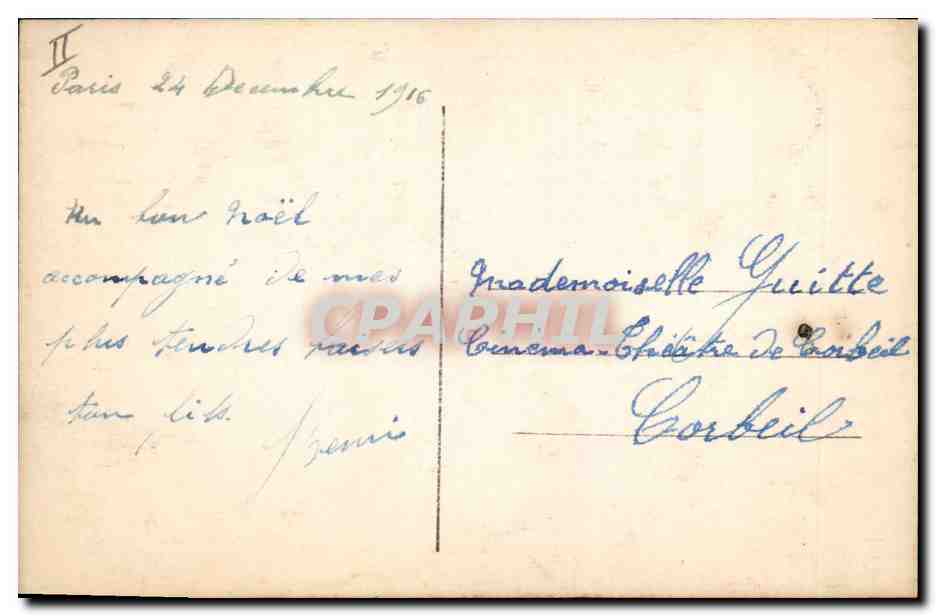 II
Paris 24 Decembre 1916
Un bon Noël
accompagné de mes
plus tendres baisers
ton
Henri
Mademoiselle Guitte
Cinema-Théâtre de Corbeil
Corbeil
CPARHIL